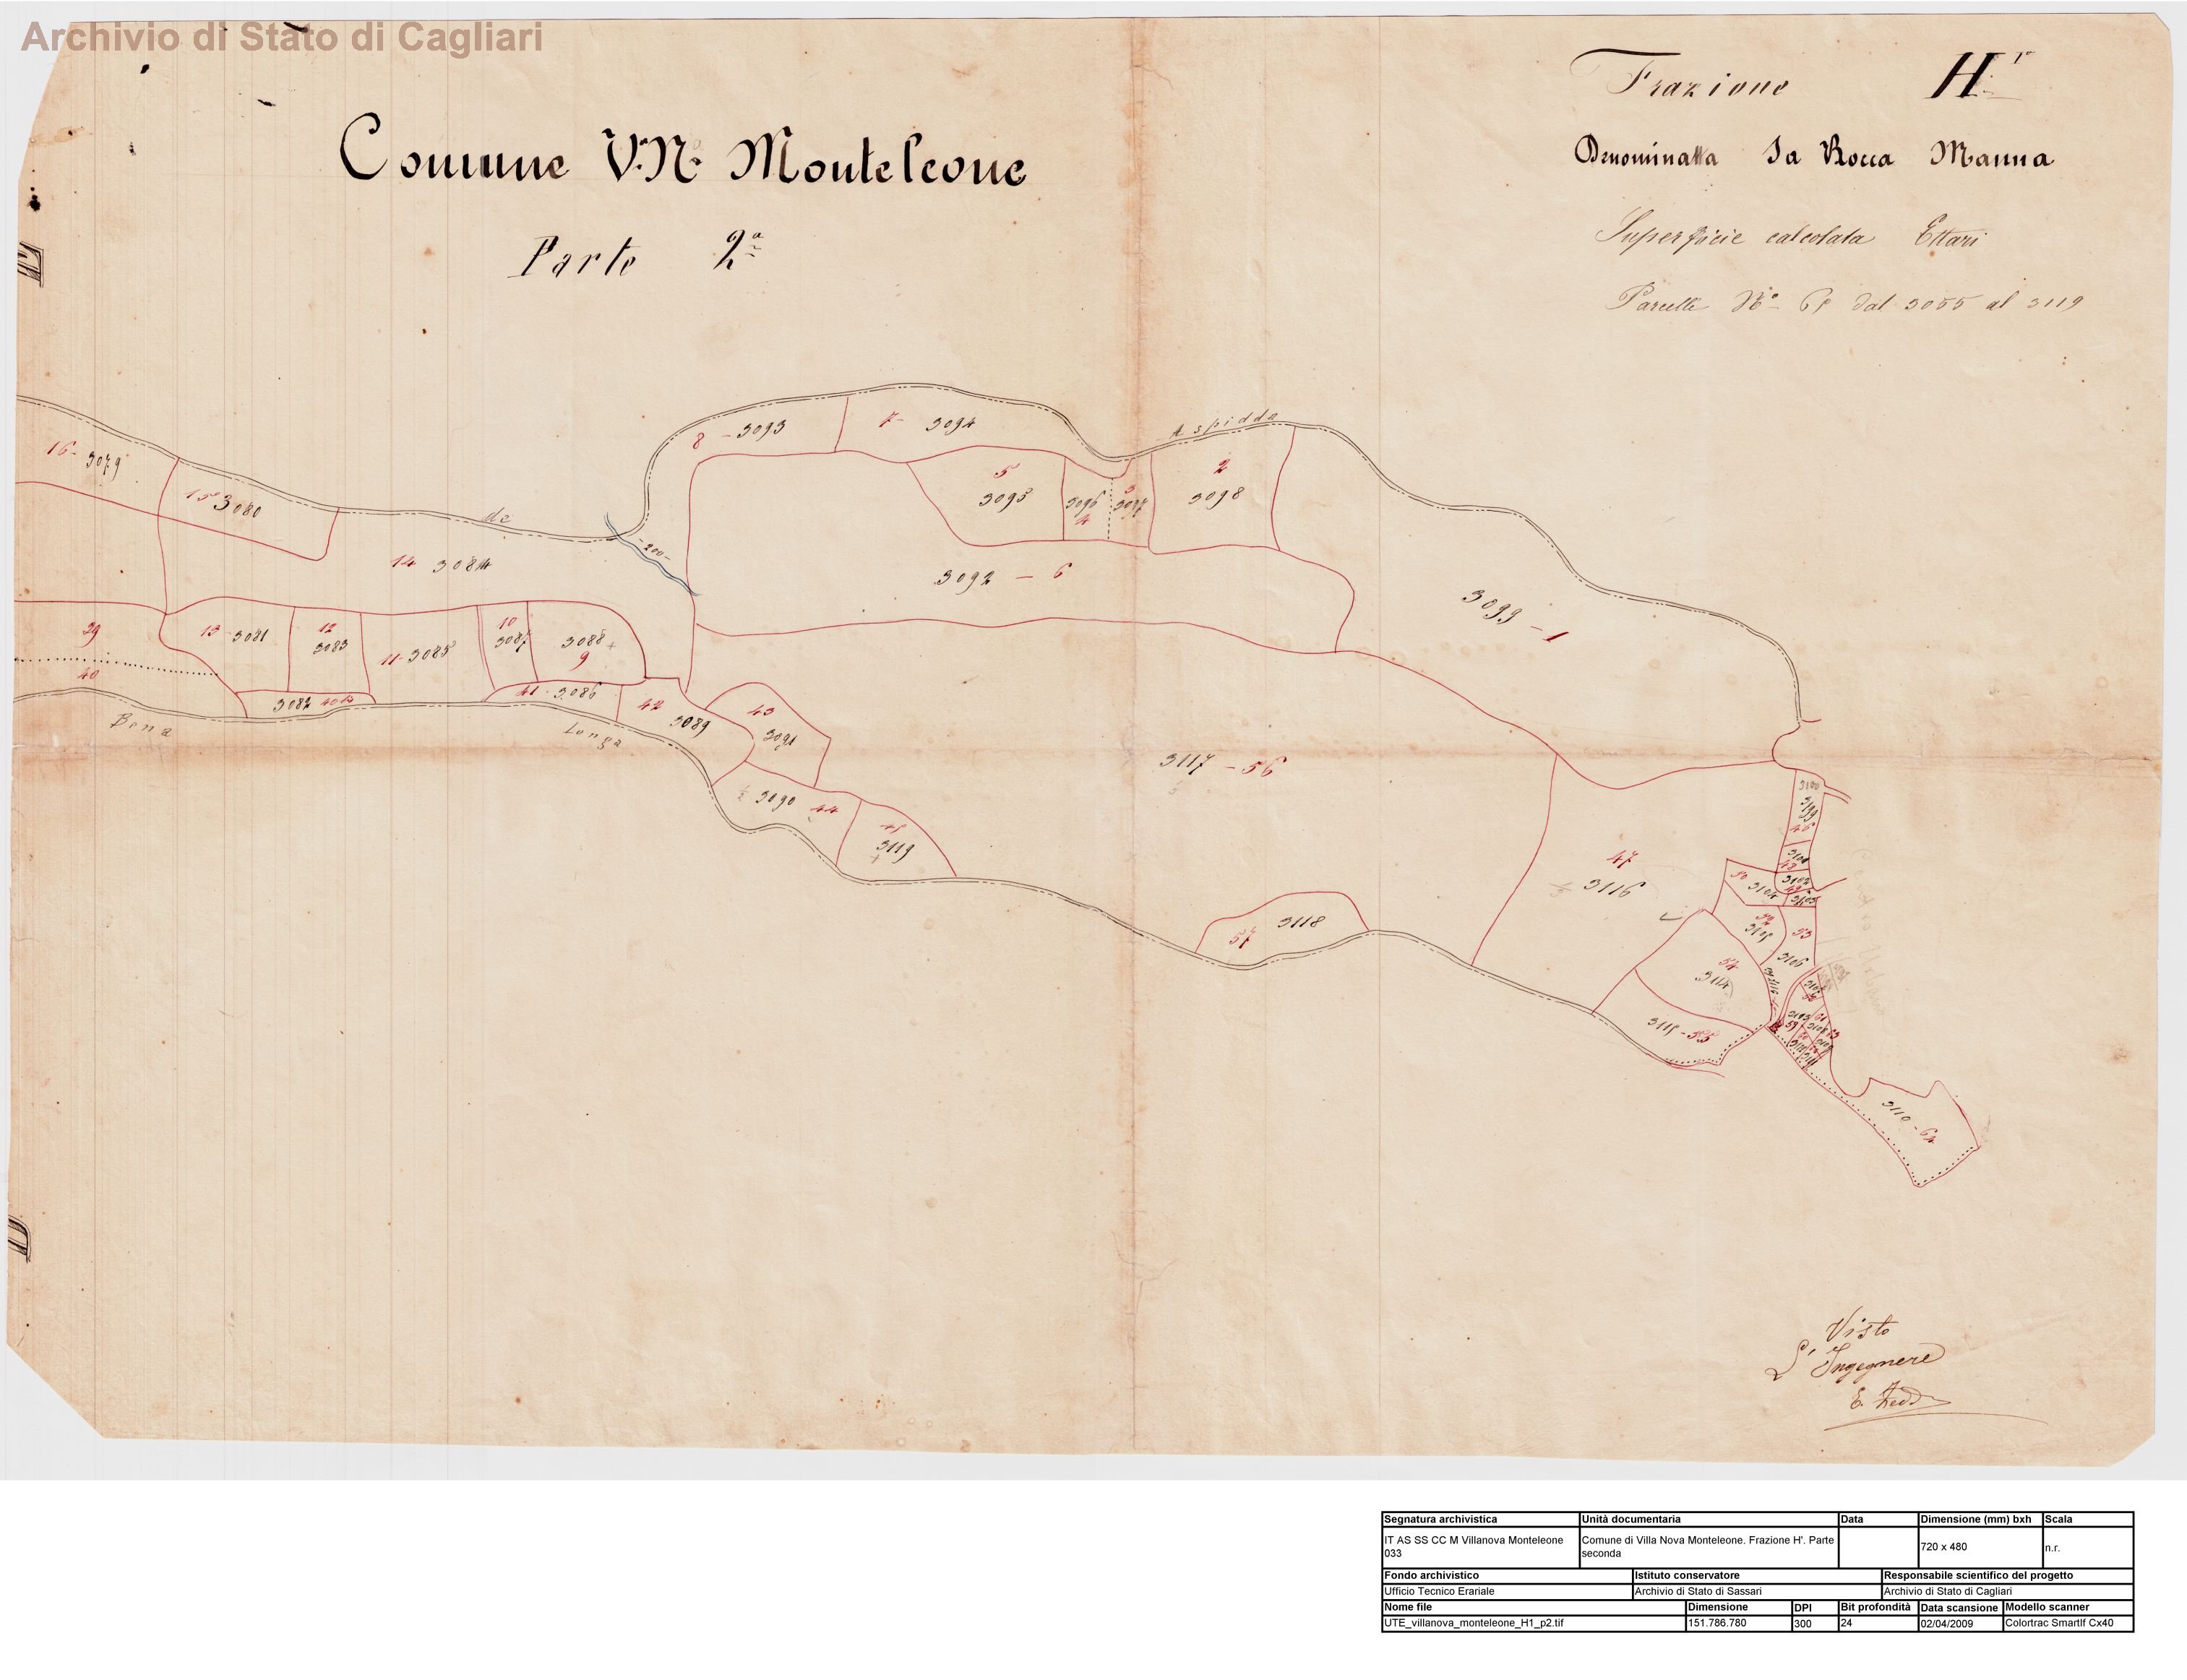 Archivio di Stato di Cagliari
Comune V.ª N.ª Monteleone
Parte 2ª
Frazione H'
Denominatta Sa Rocca Manna
Superficie calcolata Ettari
Parcelle N.º dal 3055 al 3119
Aspidda
de
-200-
16- 3079
15 3080
14 3084
8 - 3093
7- 3094
5
3095
3096
4
3
3097
2
3098
3092 - 6
3099 - 1
39
40
13 3081
12
3083
11- 3085
10
3087
3088
9
3082
41 3086
42
3089
43
3091
3090 44
3119
Bena
Longa
3117 - 56
57 3118
47
3116
3100
3101
3102
3103
50 3104
3105
53
3106
54
3114
3115 - 55
3110 - 64
Visto
L'Ingegnere
Segnatura archivistica
Unità documentaria
Data
Dimensione (mm) bxh
Scala
IT AS SS CC M Villanova Monteleone
033
Comune di Villa Nova Monteleone. Frazione H'. Parte
seconda
720 x 480
n.r.
Fondo archivistico
Istituto conservatore
Responsabile scientifico del progetto
Ufficio Tecnico Erariale
Archivio di Stato di Sassari
Archivio di Stato di Cagliari
Nome file
Dimensione
DPI
Bit profondità
Data scansione
Modello scanner
UTE_villanova_monteleone_H1_p2.tif
151.786.780
300
24
02/04/2009
Colortrac Smartlf Cx40